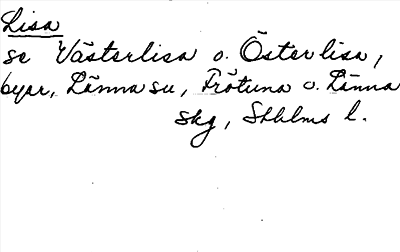 Lisa
se Västerlisa o. Österlisa,
byar, Länna su, Frötuna o. Länna
skg, Sthlms l.